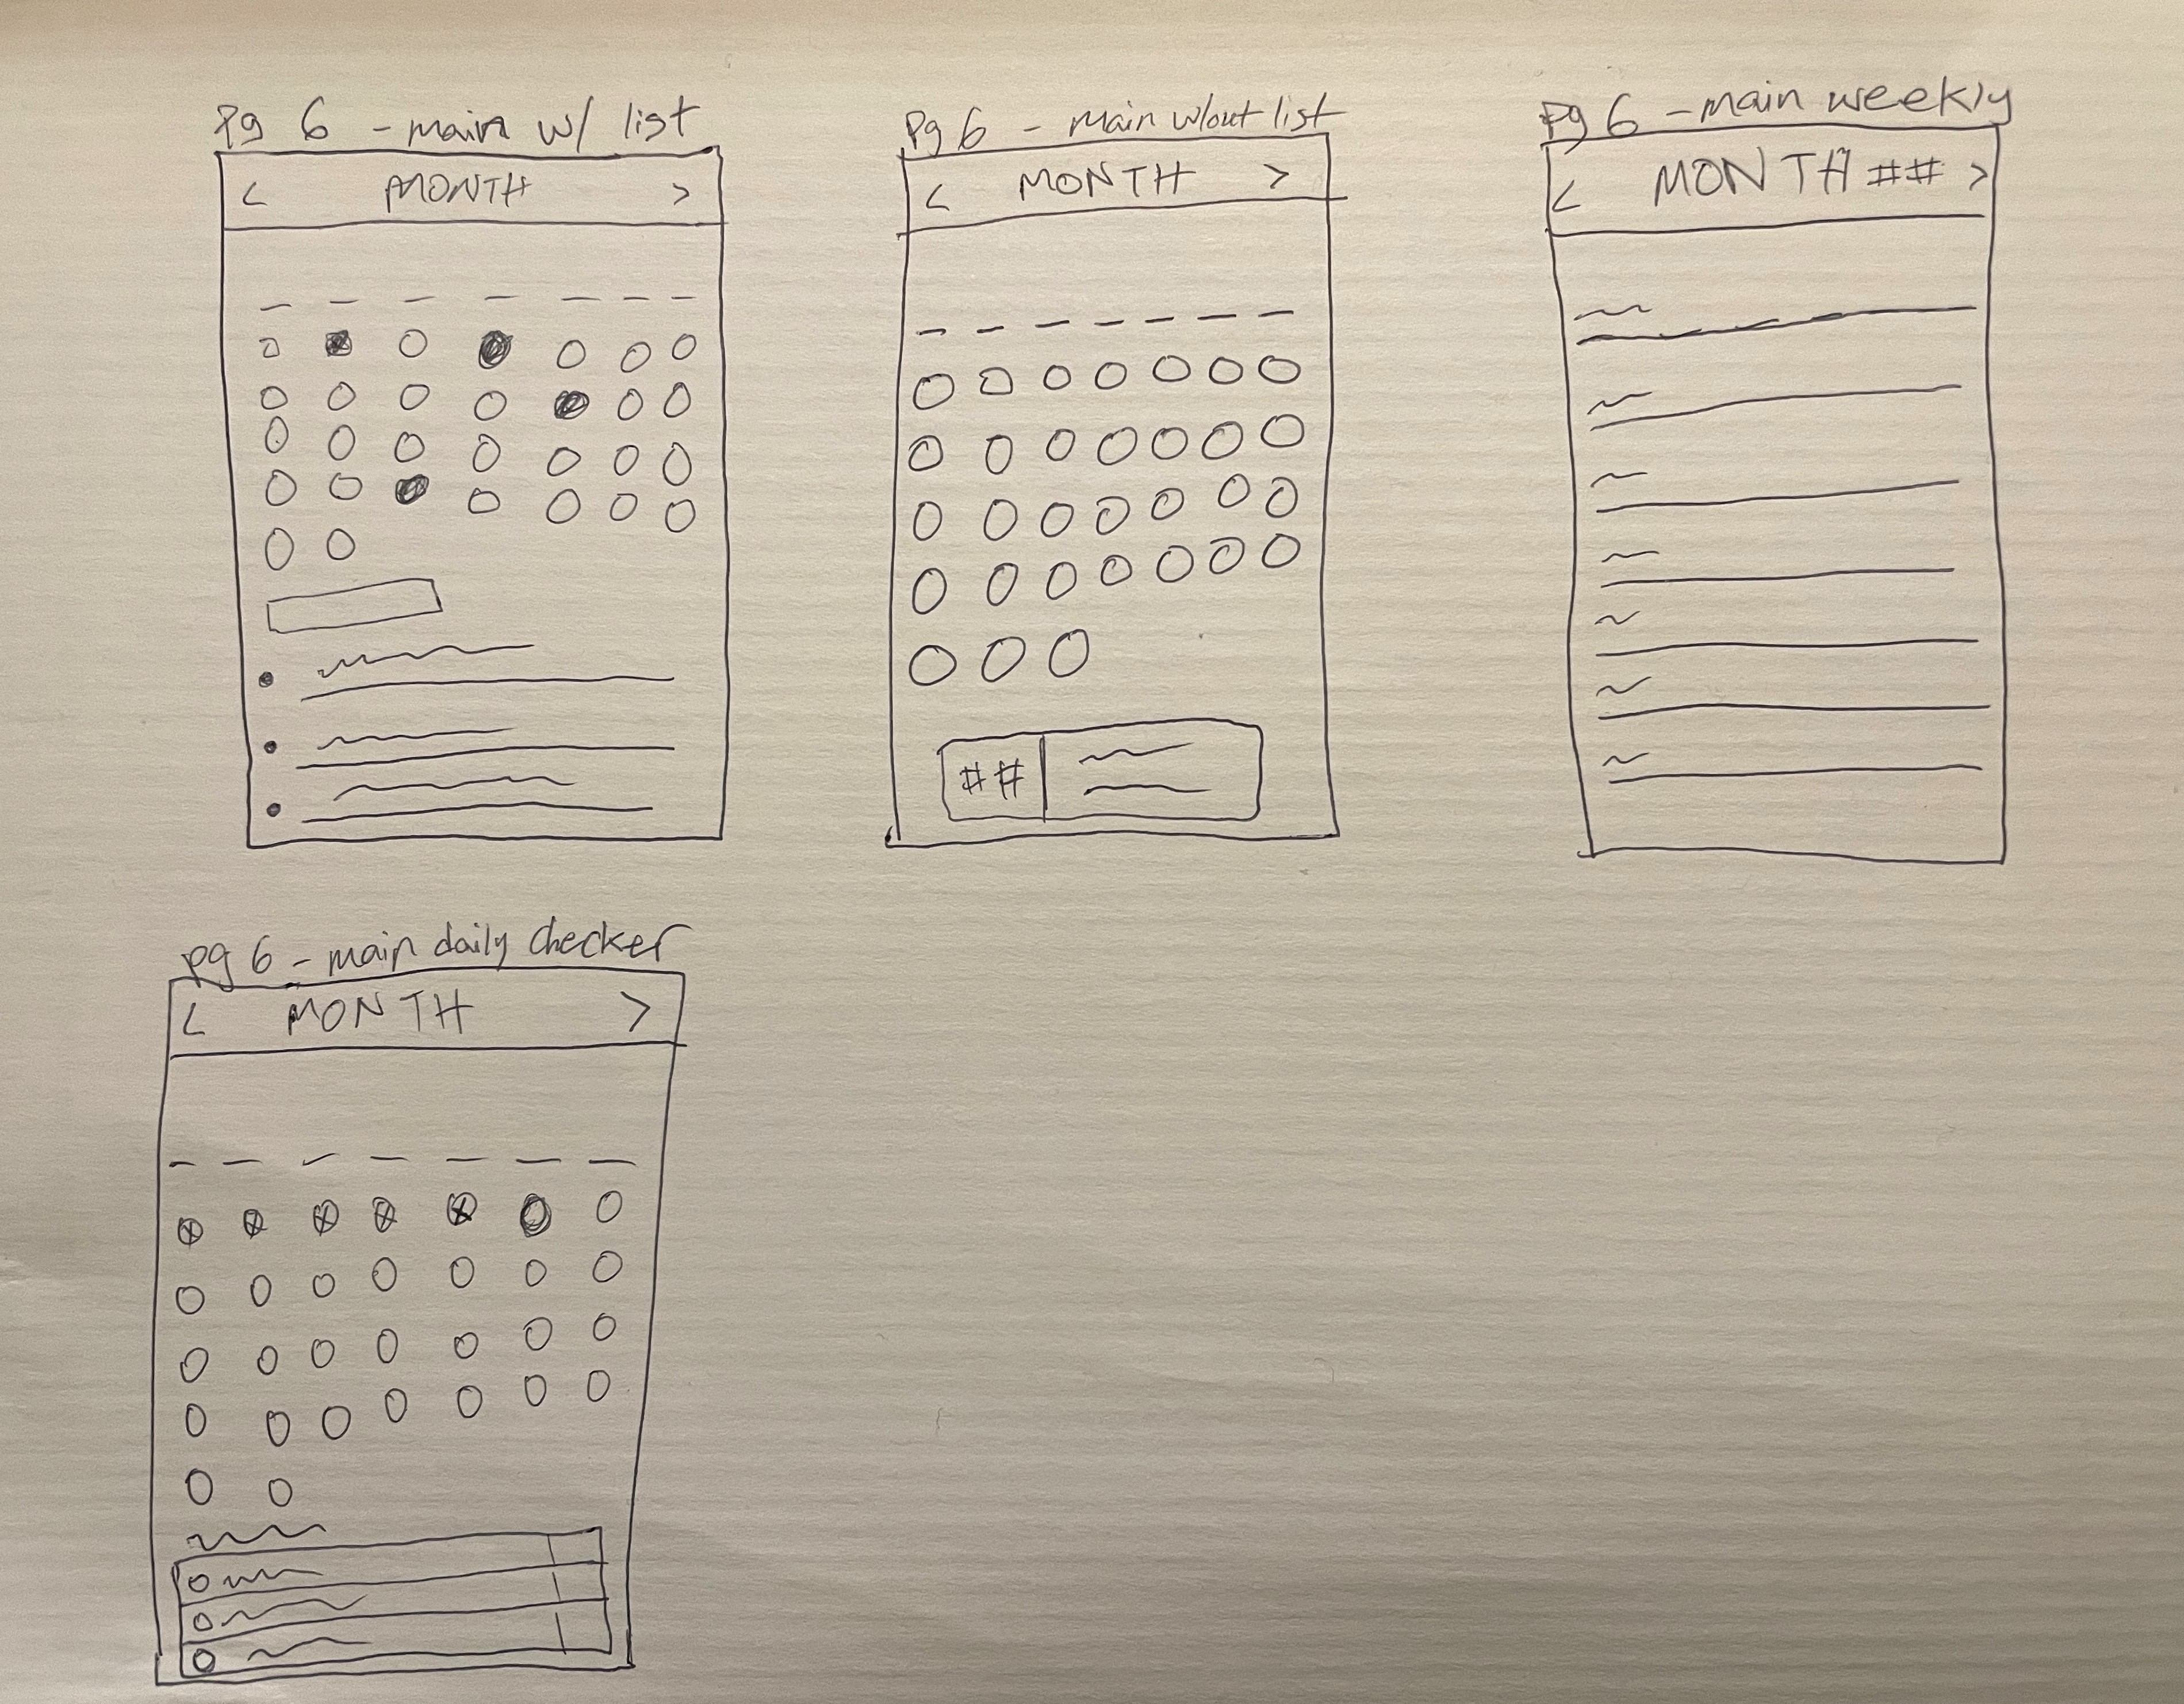 Pg 6 - main w/ list
< MONTH >
Pg 6 - main w/out list
< MONTH >
##
Pg 6 - main weekly
< MONTH ## >
pg 6 - main daily checker
< MONTH >